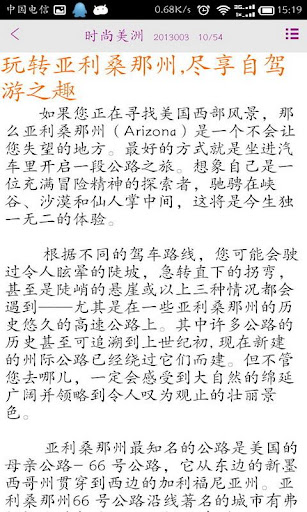 中国电信 0.68K/s 15:19
时尚美洲 2013003 10/54
玩转亚利桑那州,尽享自驾
游之趣
如果您正在寻找美国西部风景，那
么亚利桑那州（Arizona）是一个不会让
您失望的地方。最好的方式就是坐进汽
车里开启一段公路之旅。想象自己是一
位充满冒险精神的探索者，驰骋在峡
谷、沙漠和仙人掌中间，这将是今生独
一无二的体验。
根据不同的驾车路线，您可能会驶
过令人眩晕的陡坡，急转直下的拐弯，
甚至是陡峭的悬崖或以上三种情况都会
遇到——尤其是在一些亚利桑那州的历
史悠久的高速公路上。其中许多公路的
历史甚至可追溯到上世纪初，现在新建
的州际公路已经绕过它们而建。但不管
您去哪儿，一定会感受到大自然的绵延
广阔并领略到令人叹为观止的壮丽景
色。
亚利桑那州最知名的公路是美国的
母亲公路- 66 号公路，它从东边的新墨
西哥州贯穿到西边的加利福尼亚州。亚
利桑那州66号公路沿线著名的城市有弗